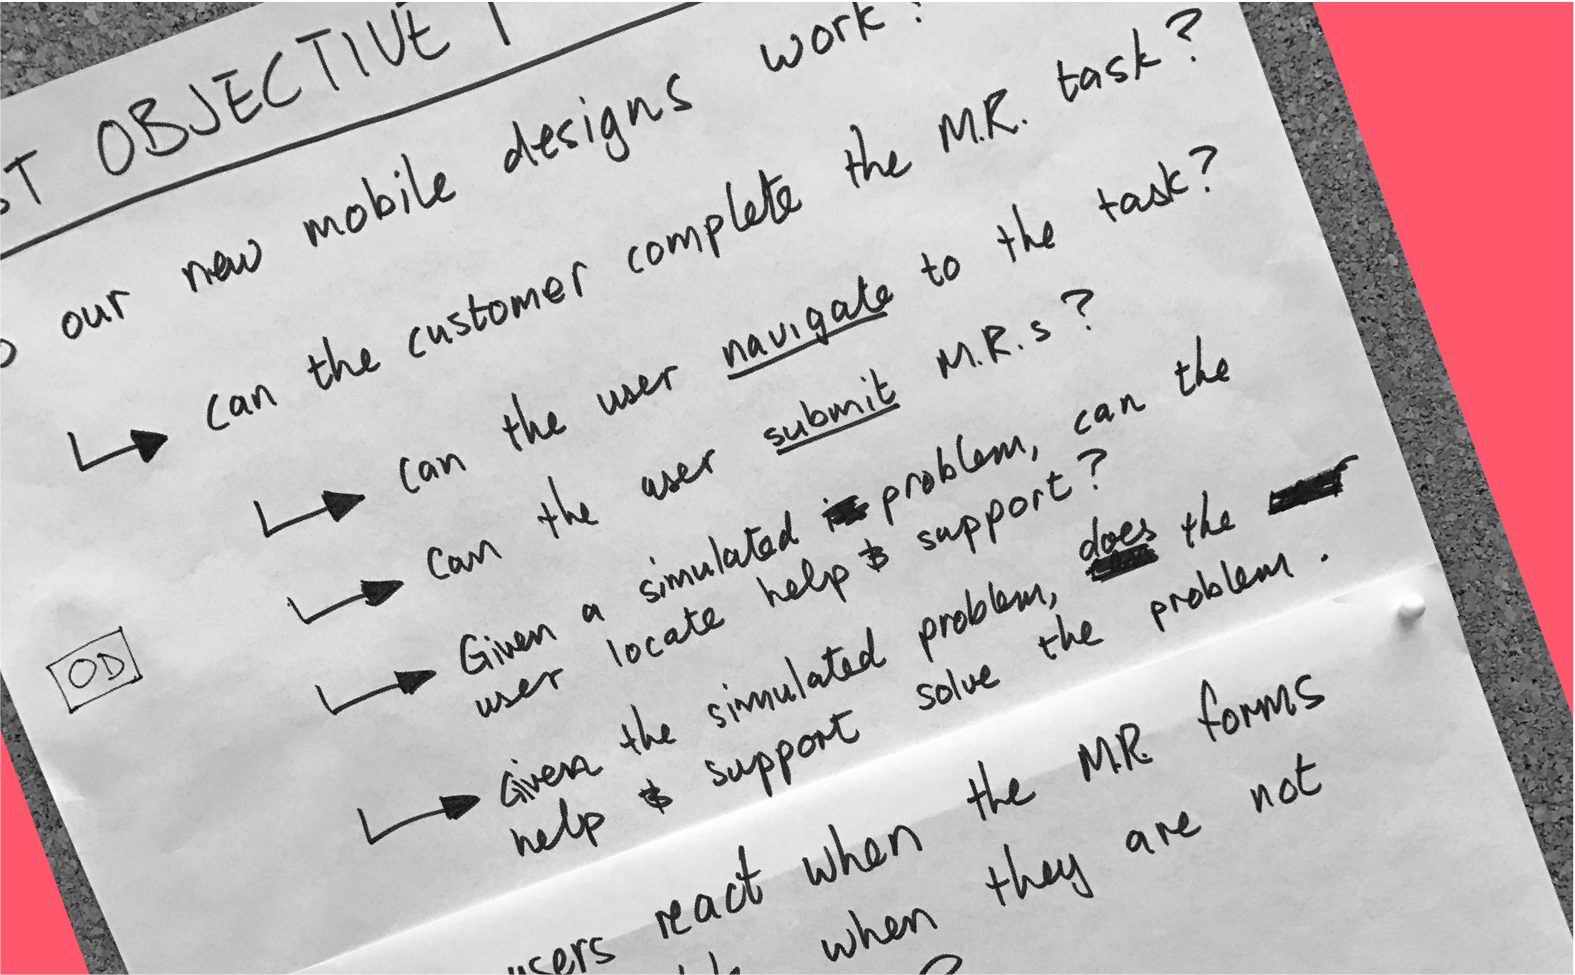 OBJECTIVE 1
our new mobile designs work?
Can the customer complete the M.R. task?
Can the user navigate to the task?
Can the user submit M.R.s?
Given a simulated problem, can the
user locate help & support?
Given the simulated problem, does the
help & support solve the problem.
OD
users react when the M.R. forms
when they are not